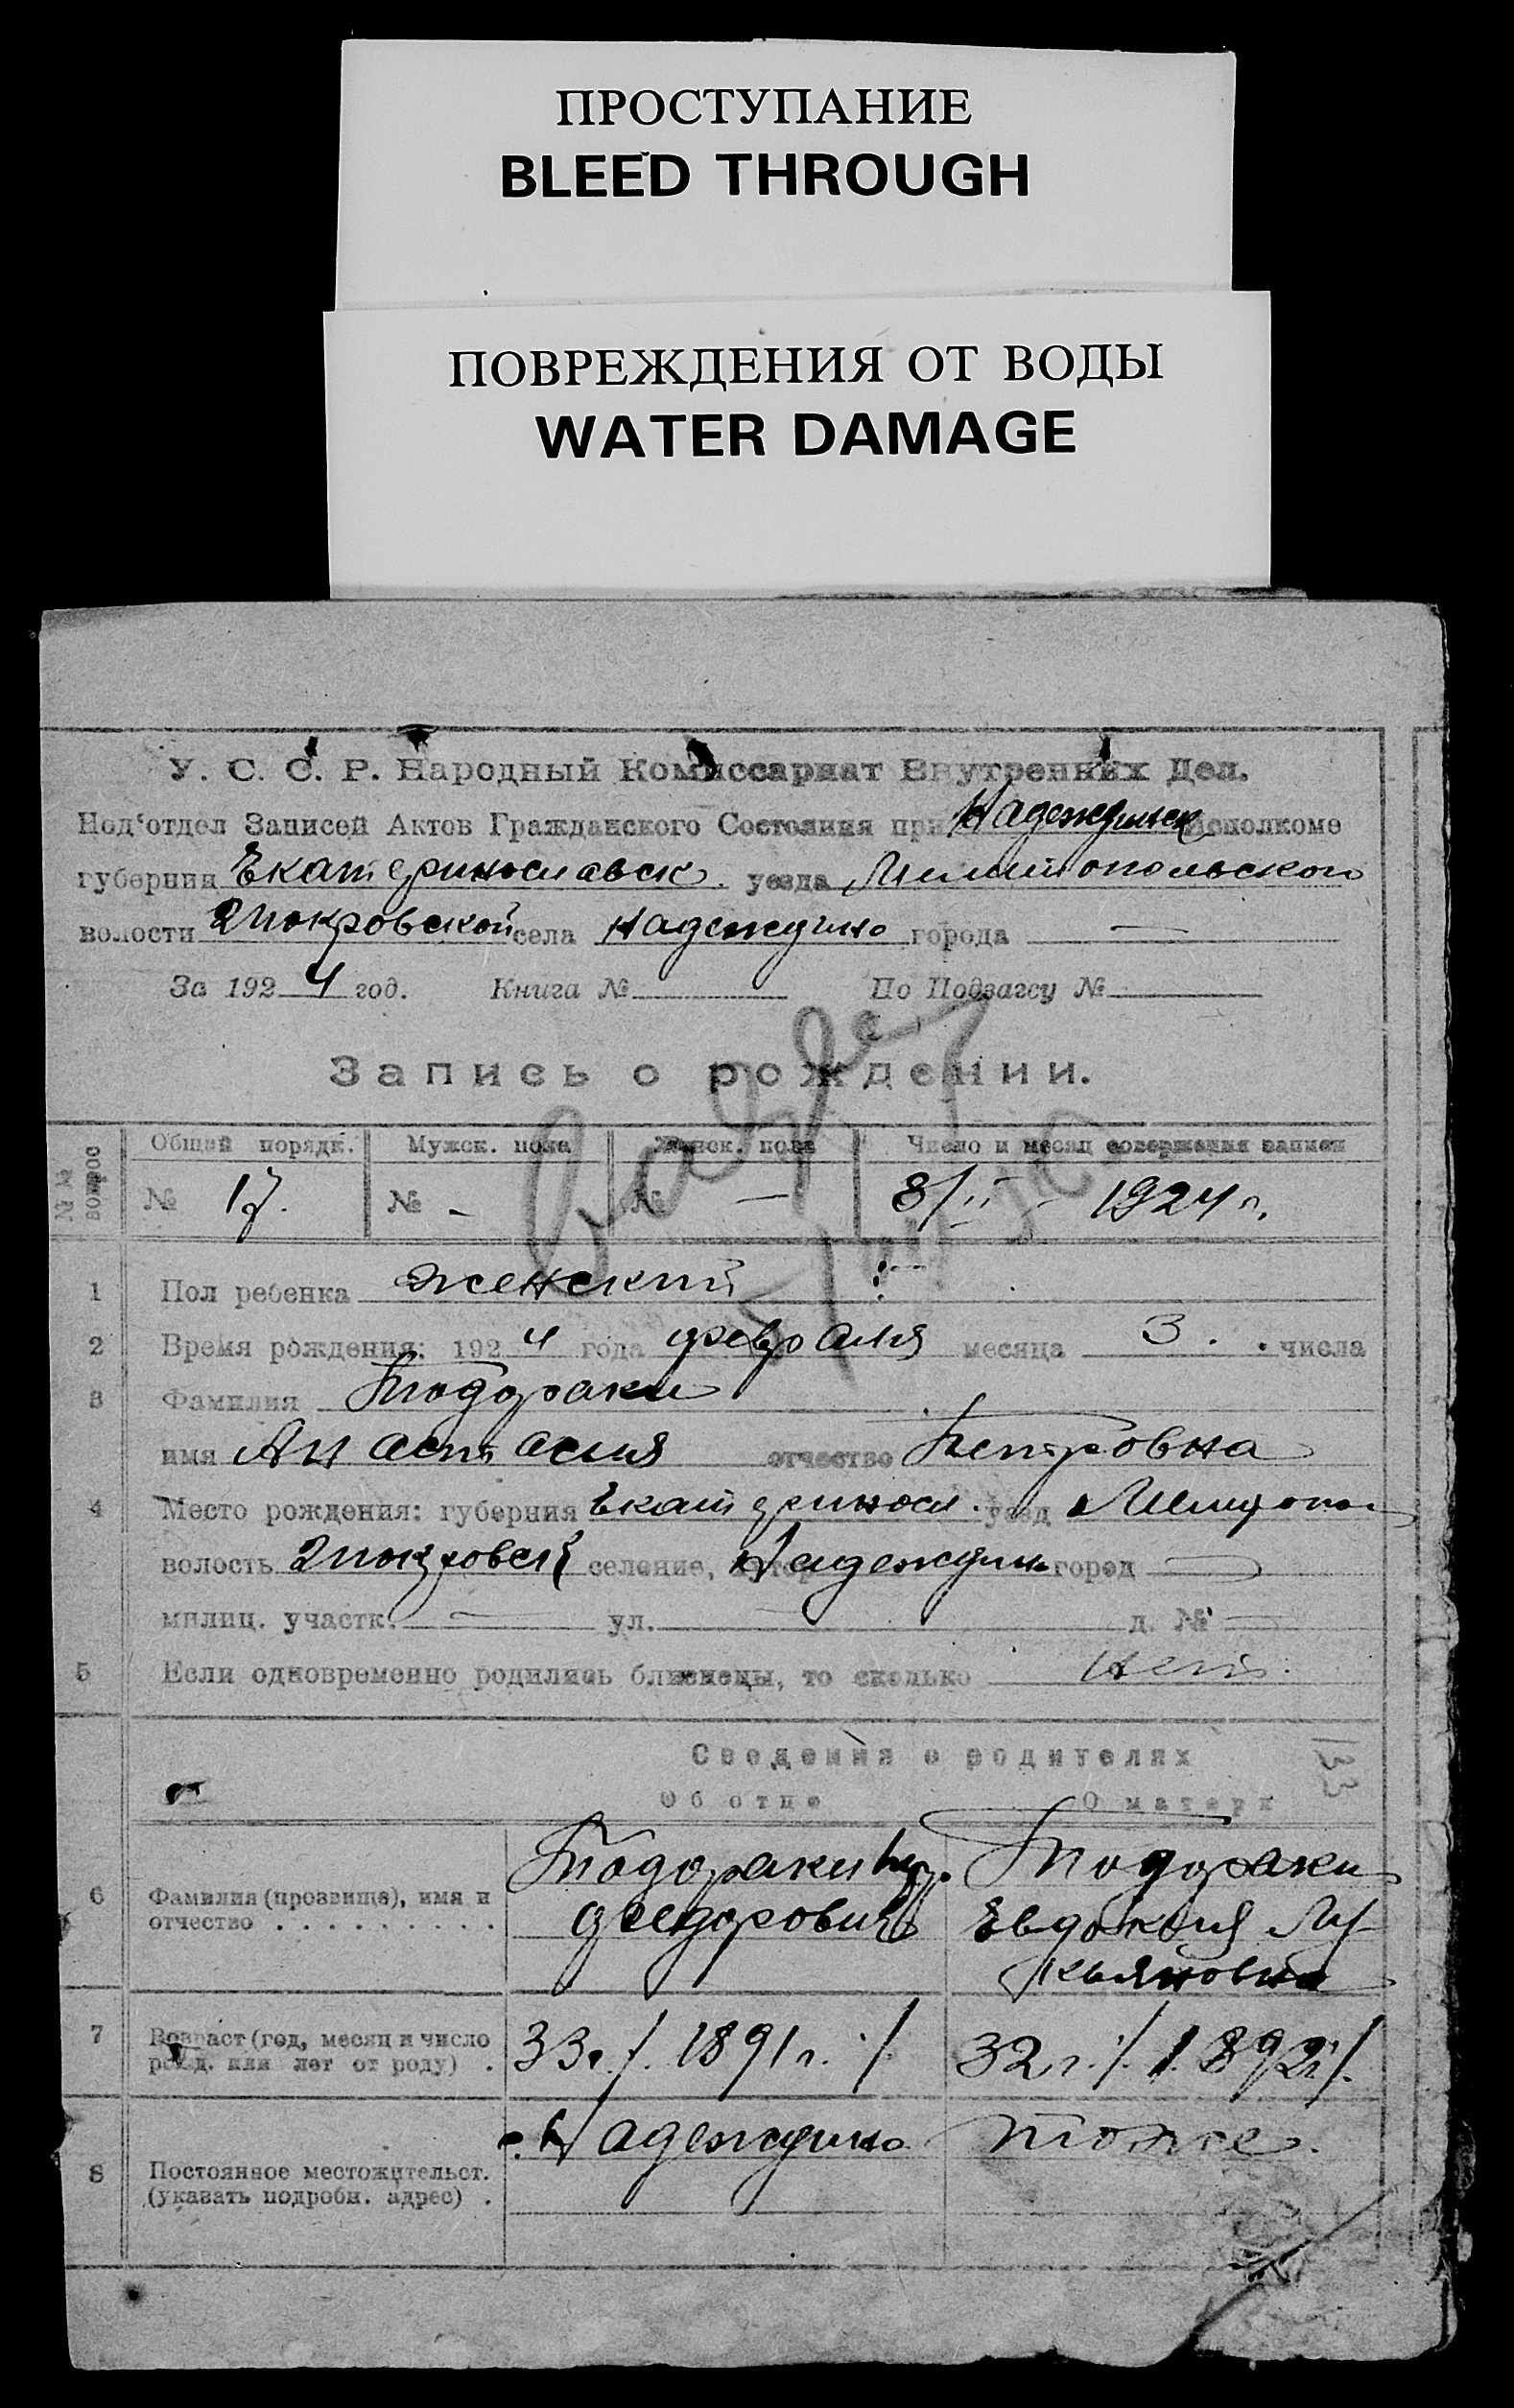 ПРОСТУПАНИЕ
BLEED THROUGH
ПОВРЕЖДЕНИЯ ОТ ВОДЫ
WATER DAMAGE
У. С. С. Р. Народный Комиссариат Внутренних Дел.
Под'отдел Записей Актов Гражданского Состояния при Надеждинск исполкоме
губернии Екатеринославск. уезда Мелитопольского
волости 2 Покровской села Надеждино города —
За 1924 год. Книга № По Подзагсу №
Запись о рождении.
№№ вопрос
Общий порядк. Мужск. пола Женск. пола Число и месяц совершения записи
№ 17. № - № — 8/II - 1924 г.
1 Пол ребенка женский
2 Время рождения: 1924 года февраля месяца 3. числа
3 Фамилия Тодораки
имя Анастасия отчество Петровна
4 Место рождения: губерния Екатериносл. уезд Мелитопол
волость 2 Покровск селение, хутор Надеждин город —
милиц. участк. — ул. — д. № —
5 Если одновременно родились близнецы, то сколько нет.
Сведения о родителях
133
Об отце О матери
6 Фамилия (прозвище), имя и отчество . . . . . . . . . Тодораки Петр. Федорович Тодораки Евдокия Лукьяновна
7 Возраст (год, месяц и число рожд. или лет от роду) . 33 г. /. 1891 г. ./ 32 г. /. 1892 г. /.
8 Постоянное местожительст. (указать подробн. адрес) . с. Надеждино тоже.